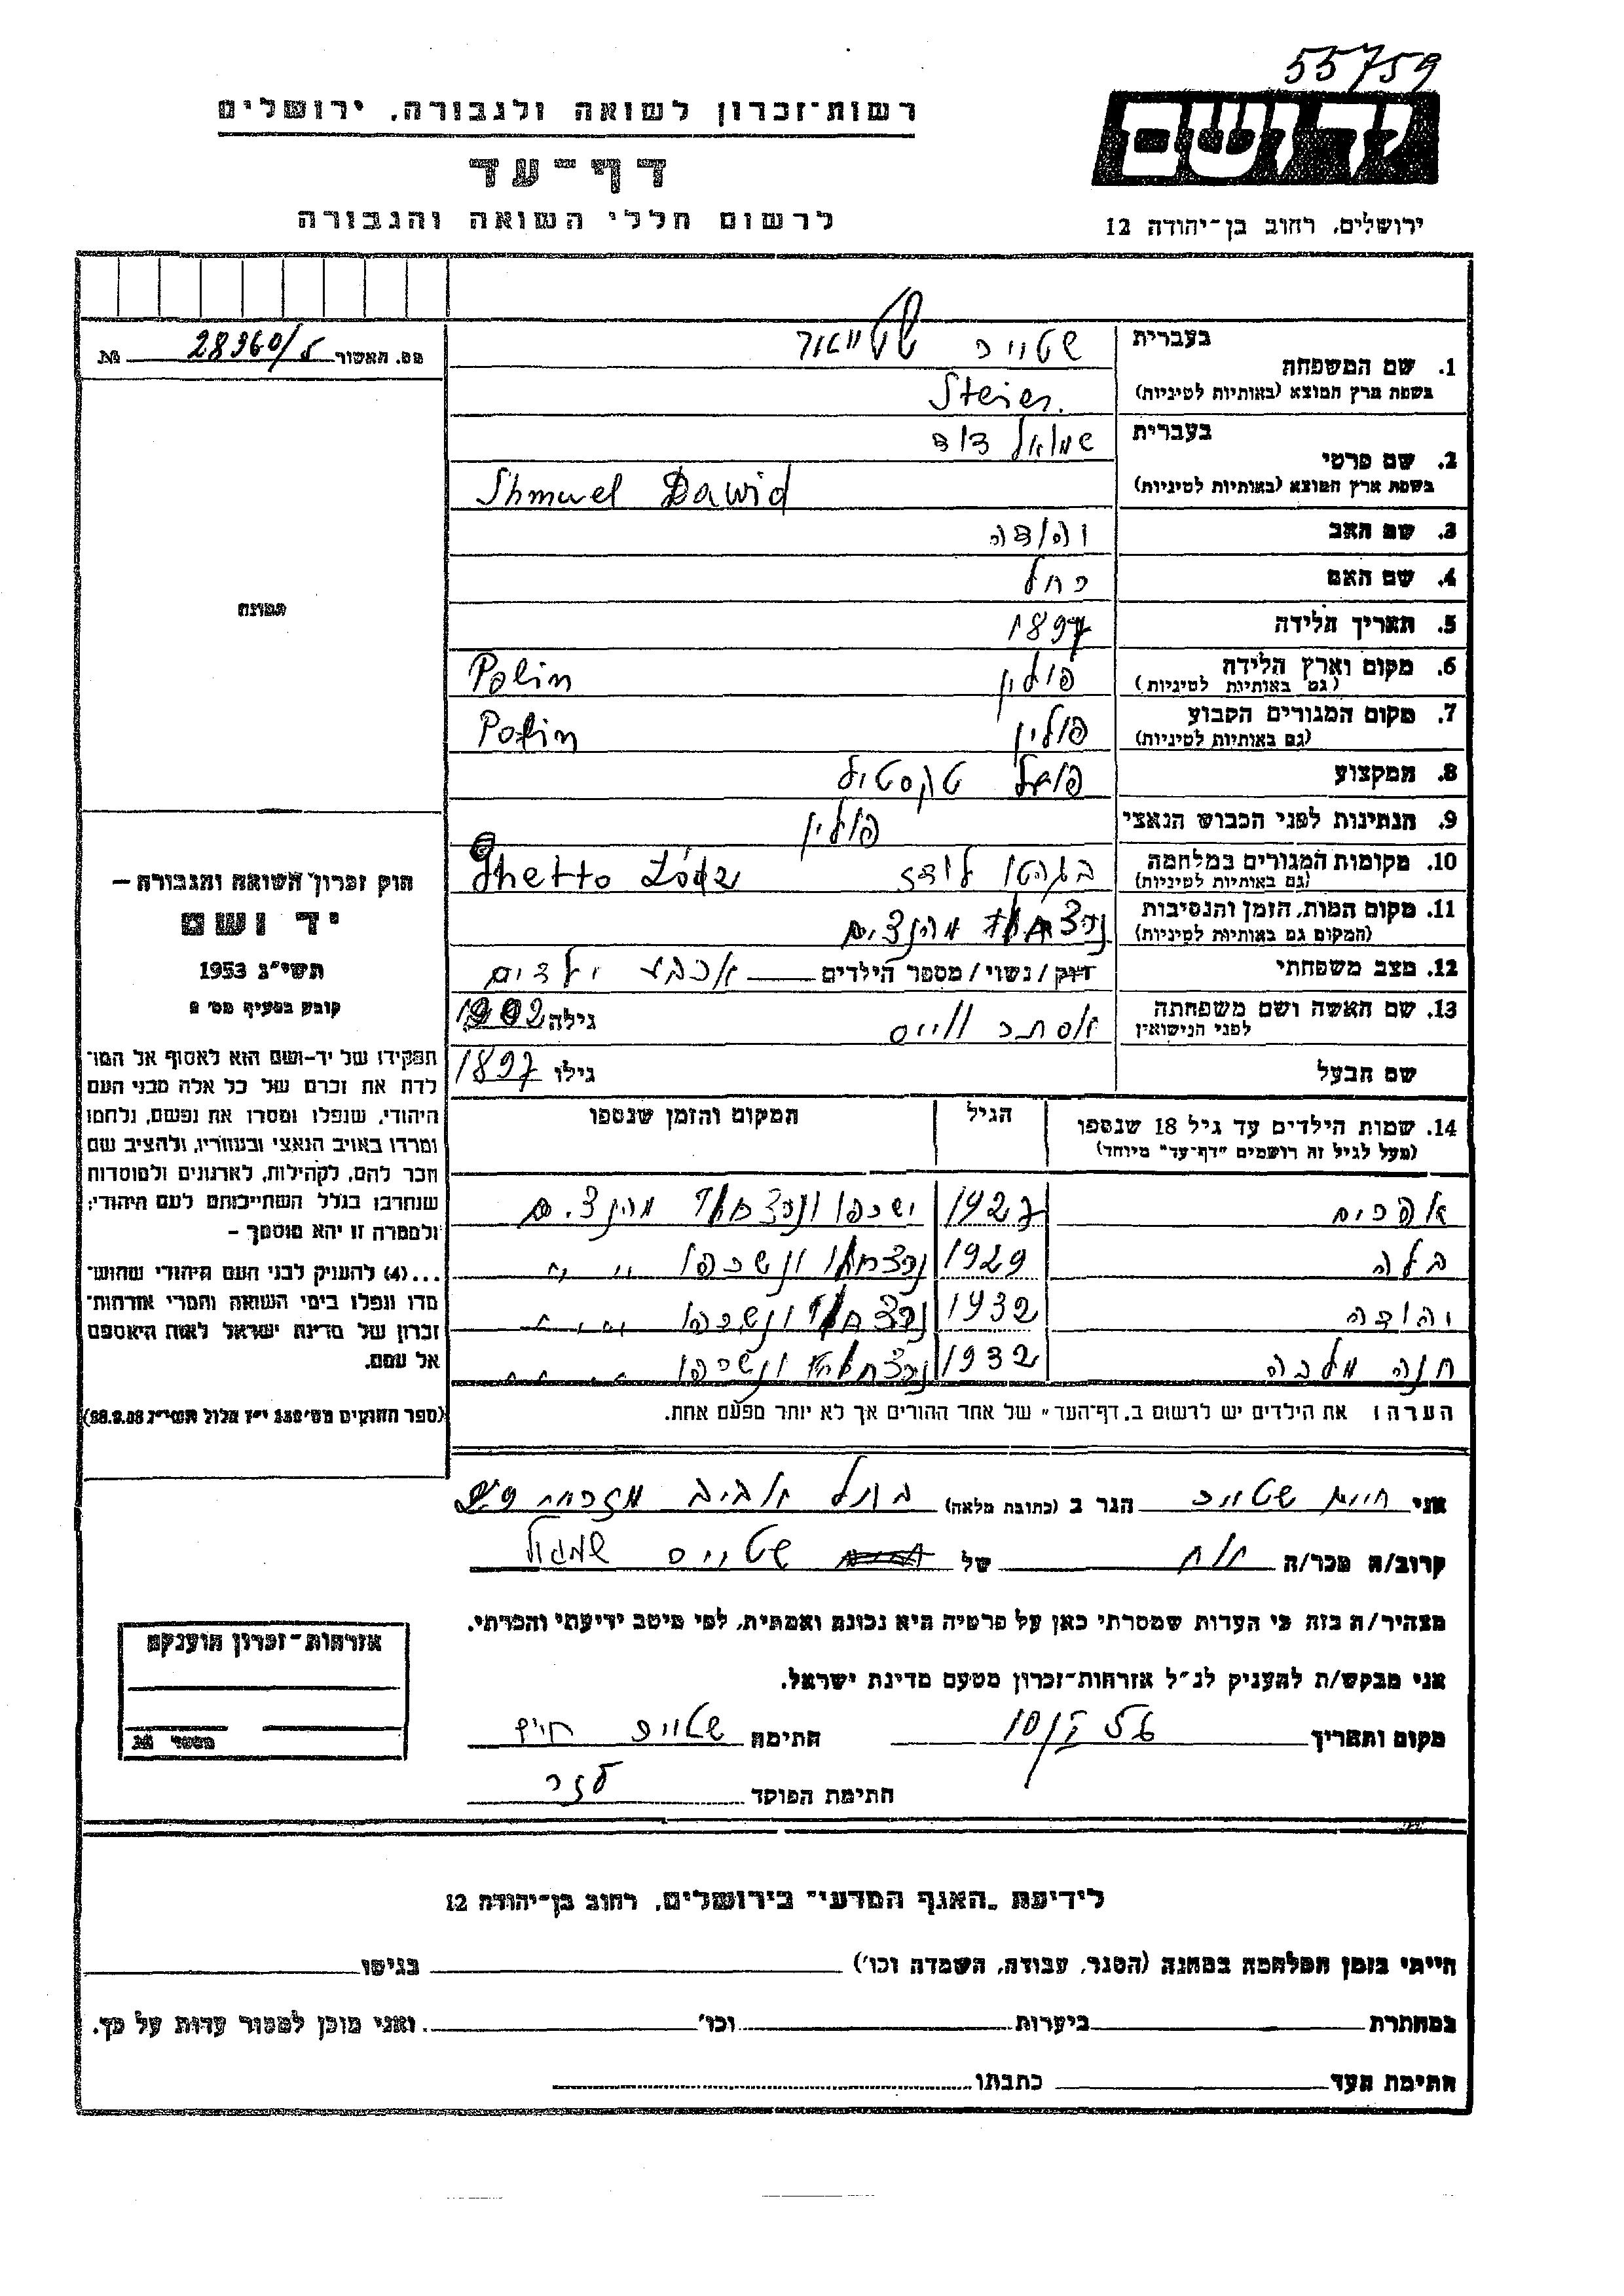 55759
רשות־זכרון לשואה ולגבורה, ירושלים
יד ושם
דף־עד
לרשום חללי השואה והגבורה
ירושלים, רחוב בן־יהודה 12
מס. האשור 28360/5 №
בעברית שטייר שטייאר
1. שם המשפחה
בשפת ארץ המוצא (באותיות לטיניות) Steier.
בעברית שמואל דוד
2. שם פרטי
בשפת ארץ המוצא (באותיות לטיניות) Shmuel Dawid
3. שם האב יהודה
4. שם האם רחל
5. תאריך הלידה 1897
6. מקום וארץ הלידה פולין Polin
(גם באותיות לטיניות)
7. מקום המגורים הקבוע פולין Polin
(גם באותיות לטיניות)
8. המקצוע פועל טקסטיל
9. הנתינות לפני הכבוש הנאצי פולין
10. מקומות המגורים במלחמה בגהטו לודז Ghetto Łódz
(גם באותיות לטיניות)
11. מקום המות, הזמן והנסיבות מהנצים
(המקום גם באותיות לטיניות)
12. מצב משפחתי רווק/נשוי/מספר הילדים ארבע ילדים
13. שם האשה ושם משפחתה אסתר ווייס גילה 1902
לפני הנישואין
שם הבעל גילו 1897
14. שמות הילדים עד גיל 18 שנספו הגיל המקום והזמן שנספו
(מעל לגיל זה רושמים "דף־עד" מיוחד)
אפרים 1927 ישרפו ונרצחו מהנצים
בלה 1929 נרצחו ונשרפו " "
יהודה 1932 נרצחו ונשרפו " "
חנה מלכה 1932 נרצחו ונשרפו " "
הערה: את הילדים יש לרשום ב„דף־העד" של אחד ההורים אך לא יותר מפעם אחת.
תמונה
חוק זכרון השואה והגבורה —
יד ושם
תשי"ג 1953
קובע בסעיף מס' 2
תפקידו של יד־ושם הוא לאסוף אל המו־
לדת את זכרם של כל אלה מבני העם
היהודי, שנפלו ומסרו את נפשם, נלחמו
ומרדו באויב הנאצי ובעוזריו, ולהציב שם
וזכר להם, לקהילות, לארגונים ולמוסדות
שנחרבו בגלל השתייכותם לעם היהודי;
ולמטרה זו יהא מוסמך —
...(4) להעניק לבני העם היהודי שהוש־
מדו ונפלו בימי השואה והמרי אזרחות־
זכרון של מדינת ישראל לאות היאספם
אל עמם.
(ספר החוקים מס' 132 י"ז אלול תשי"ג 28.8.53)
אני חיים שטייר הגר ב (כתובת מלאה) בתל אביב מזרחי
קרוב/ה מכר/ה אח של שטייר שמואל
מצהיר/ה בזה כי העדות שמסרתי כאן על פרטיה היא נכונה ואמתית, לפי מיטב ידיעתי והכרתי.
אני מבקש/ת להעניק לנ"ל אזרחות־זכרון מטעם מדינת ישראל.
מקום ותאריך 10/I 56 חתימה שטייר חיים
חתימת הפוקד
אזרחות־זכרון הוענקה
מספר №
לידיעת „האגף המדעי" בירושלים, רחוב בן־יהודה 12
הייתי בזמן המלחמה במחנה (הסגר, עבודה, השמדה וכו') בגיטו
במחתרת ביערות וכו' ואני מוכן למסור עדות על כך.
חתימת העד כתבתו